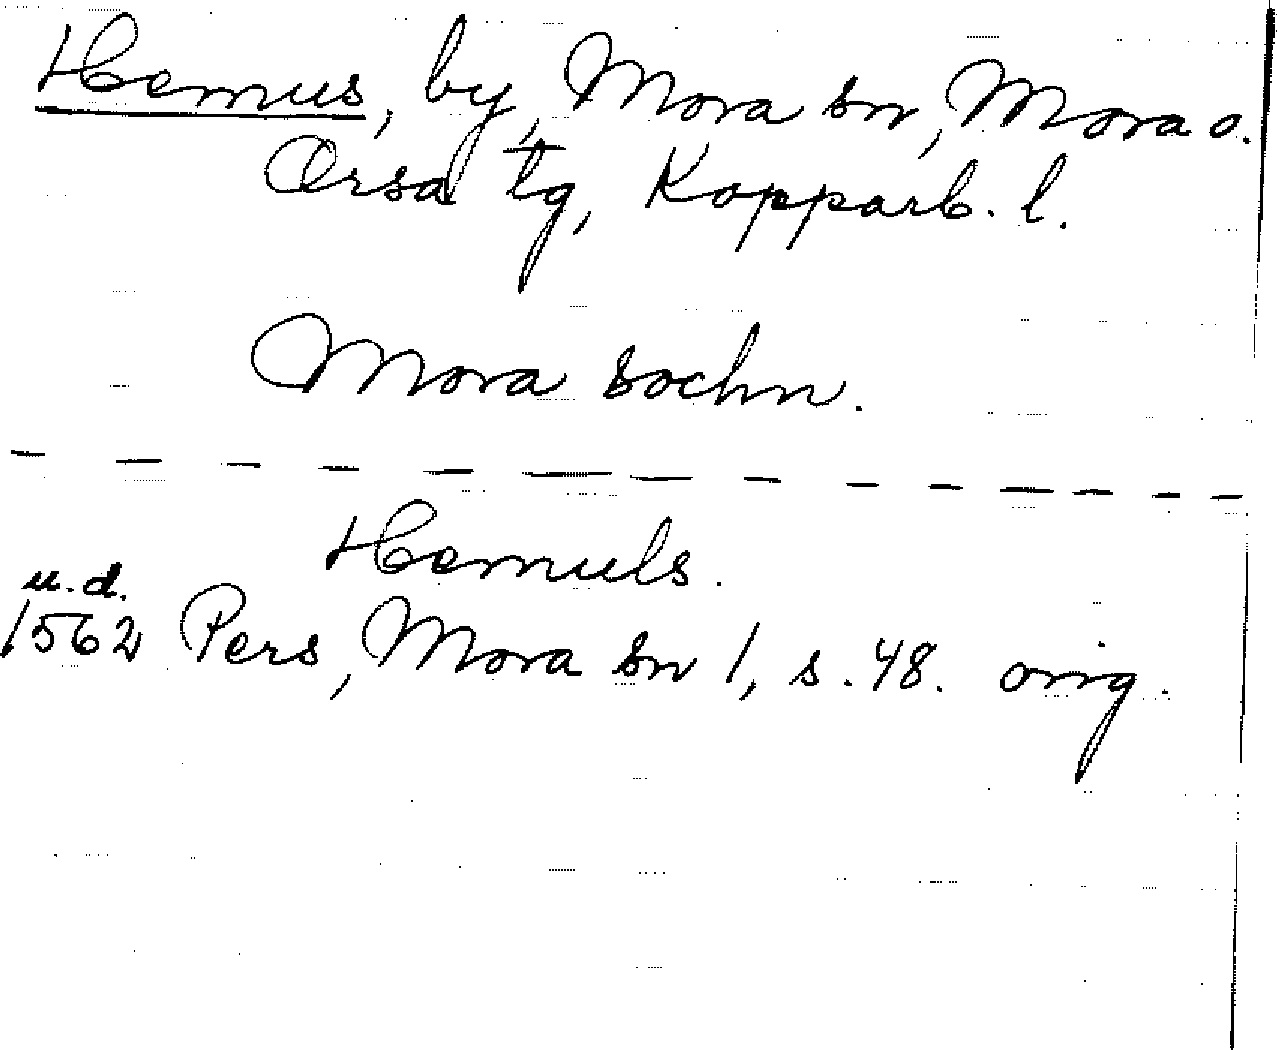 Hemus, by, Mora sn, Mora o.
Orsa tg, Kopparb. l.
Mora Sochn.
Hemuls.
u.d.
1562 Pers, Mora sn 1, s. 48. orig.